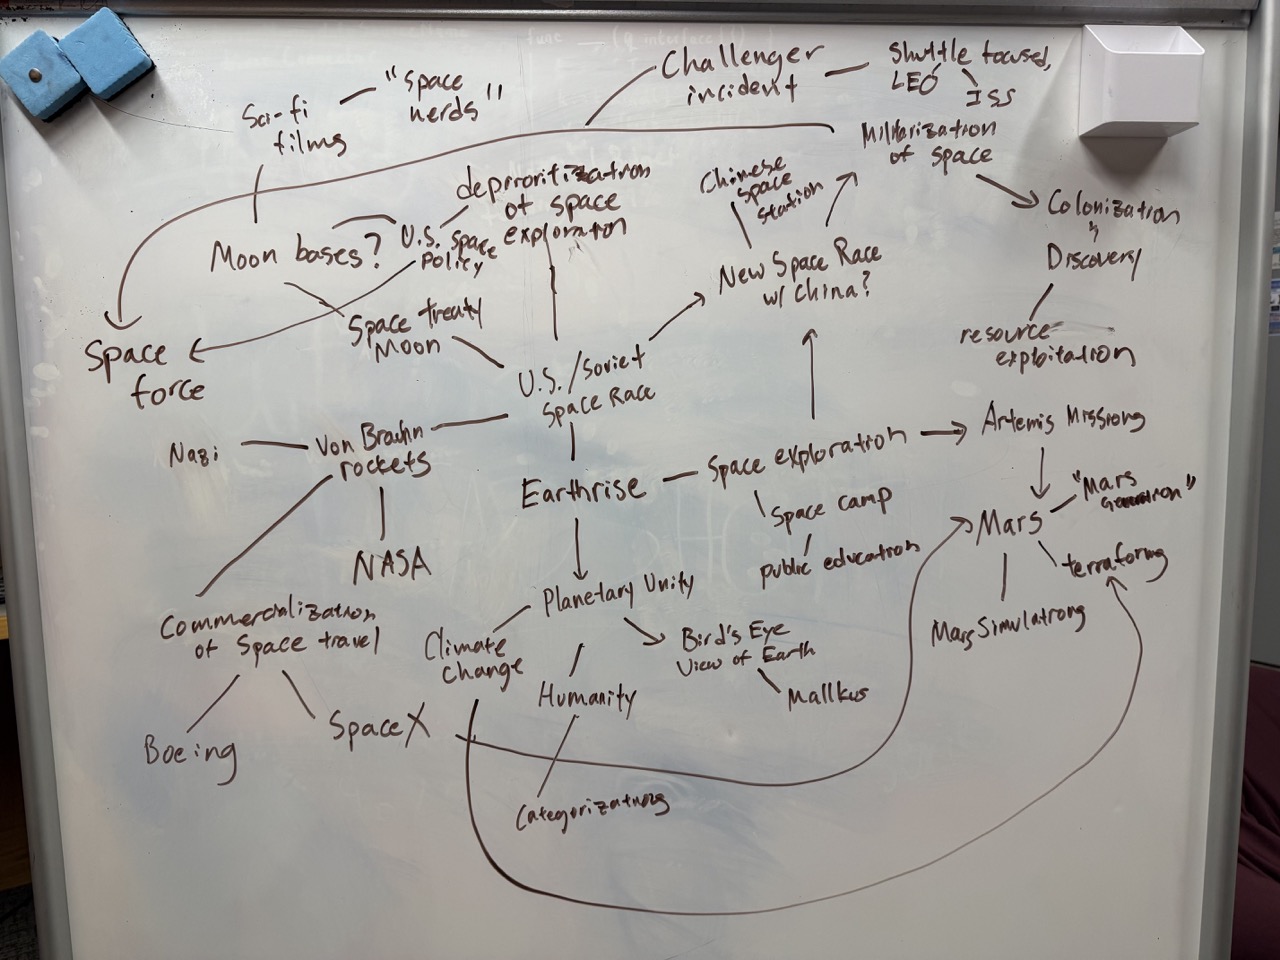 Challenger
incident
Shuttle focused,
LEO
ISS
"Space
nerds"
Sci-fi
films
Militarization
of space
deprioritization
of space
exploration
Chinese
Space
Station
Colonization
&
Discovery
Moon bases?
U.S. Space
Policy
New Space Race
w/ China?
Space treaty
Moon
resource
exploitation
Space
force
U.S./Soviet
Space Race
Nazi
Von Brauhn
rockets
Space exploration
Artemis Missions
Earthrise
Space camp
public education
Mars
"Mars
terraforming
NASA
Planetary Unity
Mars Simulations
Commercialization
of Space travel
Climate
Change
Bird's Eye
View of Earth
Humanity
Mallkus
Boeing
SpaceX
Categorizations